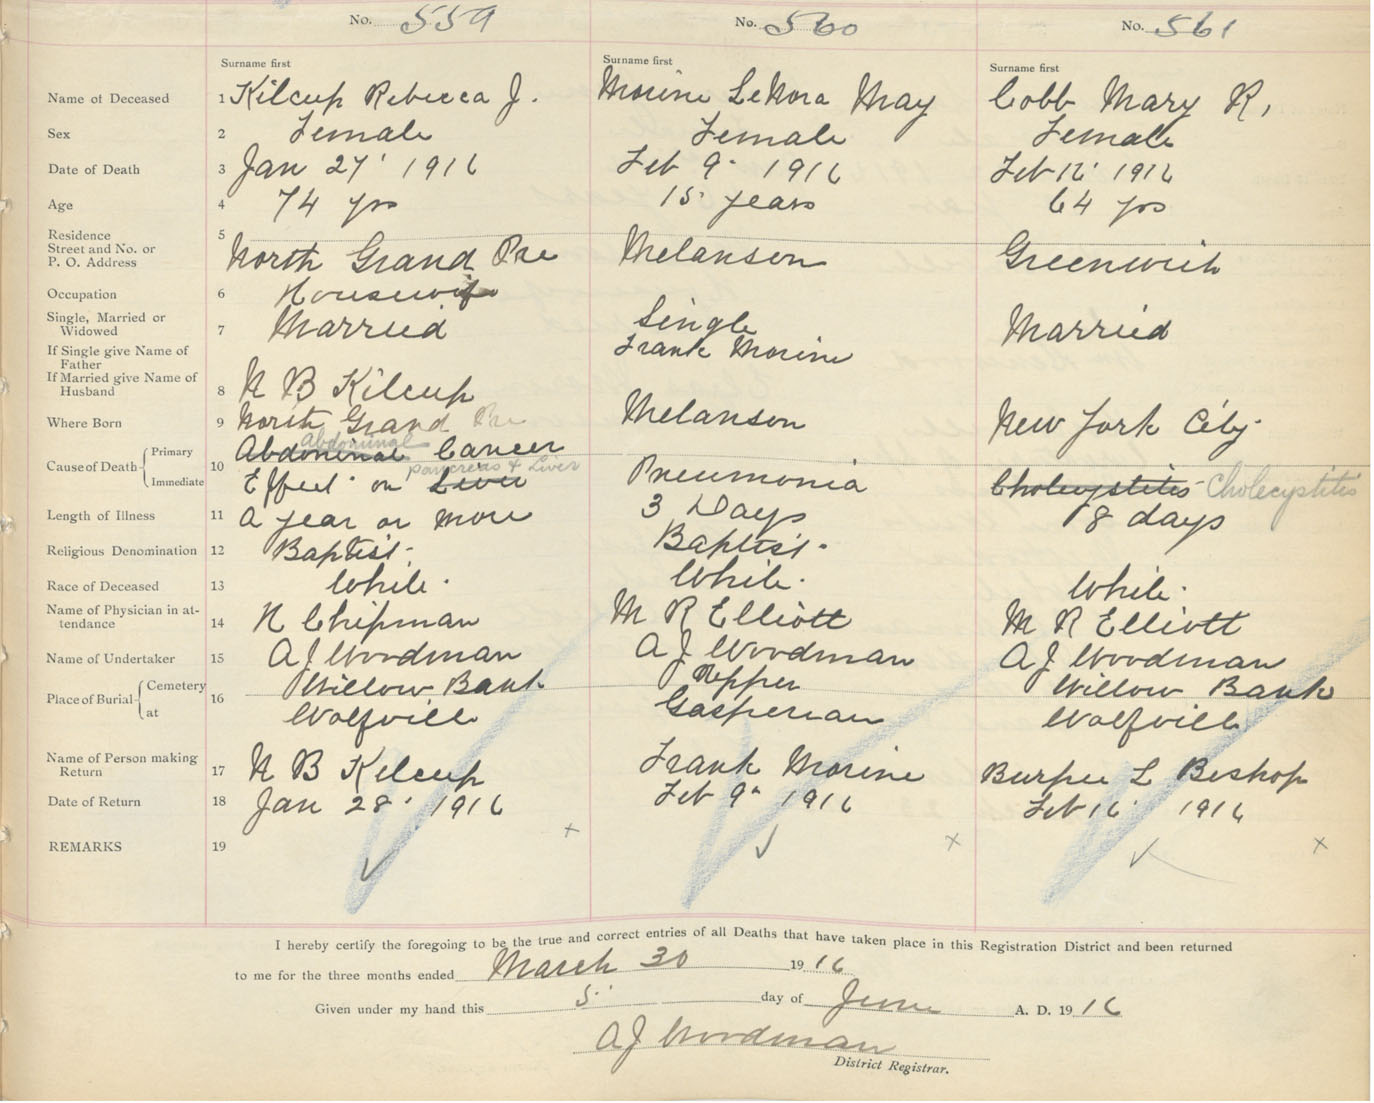 No. 559 No. 560 No. 561
Surname first Surname first Surname first
Name of Deceased 1 Kilcup Rebecca J. Morine LeNora May Cobb Mary R.
Sex 2 Female Female Female
Date of Death 3 Jan 27 1916 Feb 9 1916 Feb 12 1916
Age 4 74 yrs 15 years 64 yrs
Residence 5
Street and No. or
P. O. Address North Grand Pre Melanson Greenwich
Occupation 6 Housewife
Single, Married or
Widowed 7 Married Single Married
If Single give Name of
Father Frank Morine
If Married give Name of
Husband 8 N B Kilcup
Where Born 9 North Grand Pre Melanson New York City
Abdominal
Cause of Death Primary Abdominal Cancer
10 Pneumonia Cholecystites Cholecystitis
pancreas & Liver
Immediate Effect on Liver
Length of Illness 11 a year or more 3 Days 8 days
Religious Denomination 12 Baptist Baptist
Race of Deceased 13 White White White
Name of Physician in at-
tendance 14 N Chipman M R Elliott M R Elliott
Name of Undertaker 15 A J Woodman A J Woodman A J Woodman
Place of Burial Cemetery 16 Willow Bank Upper Willow Bank
at Wolfville Gasperian Wolfville
Name of Person making
Return 17 N B Kilcup Frank Morine Burpee L Bishop
Date of Return 18 Jan 28 1916 Feb 9 1916 Feb 16 1916
REMARKS 19
I hereby certify the foregoing to be the true and correct entries of all Deaths that have taken place in this Registration District and been returned
to me for the three months ended March 30 1916
Given under my hand this 5 day of June A. D. 1916
A J Woodman
District Registrar.